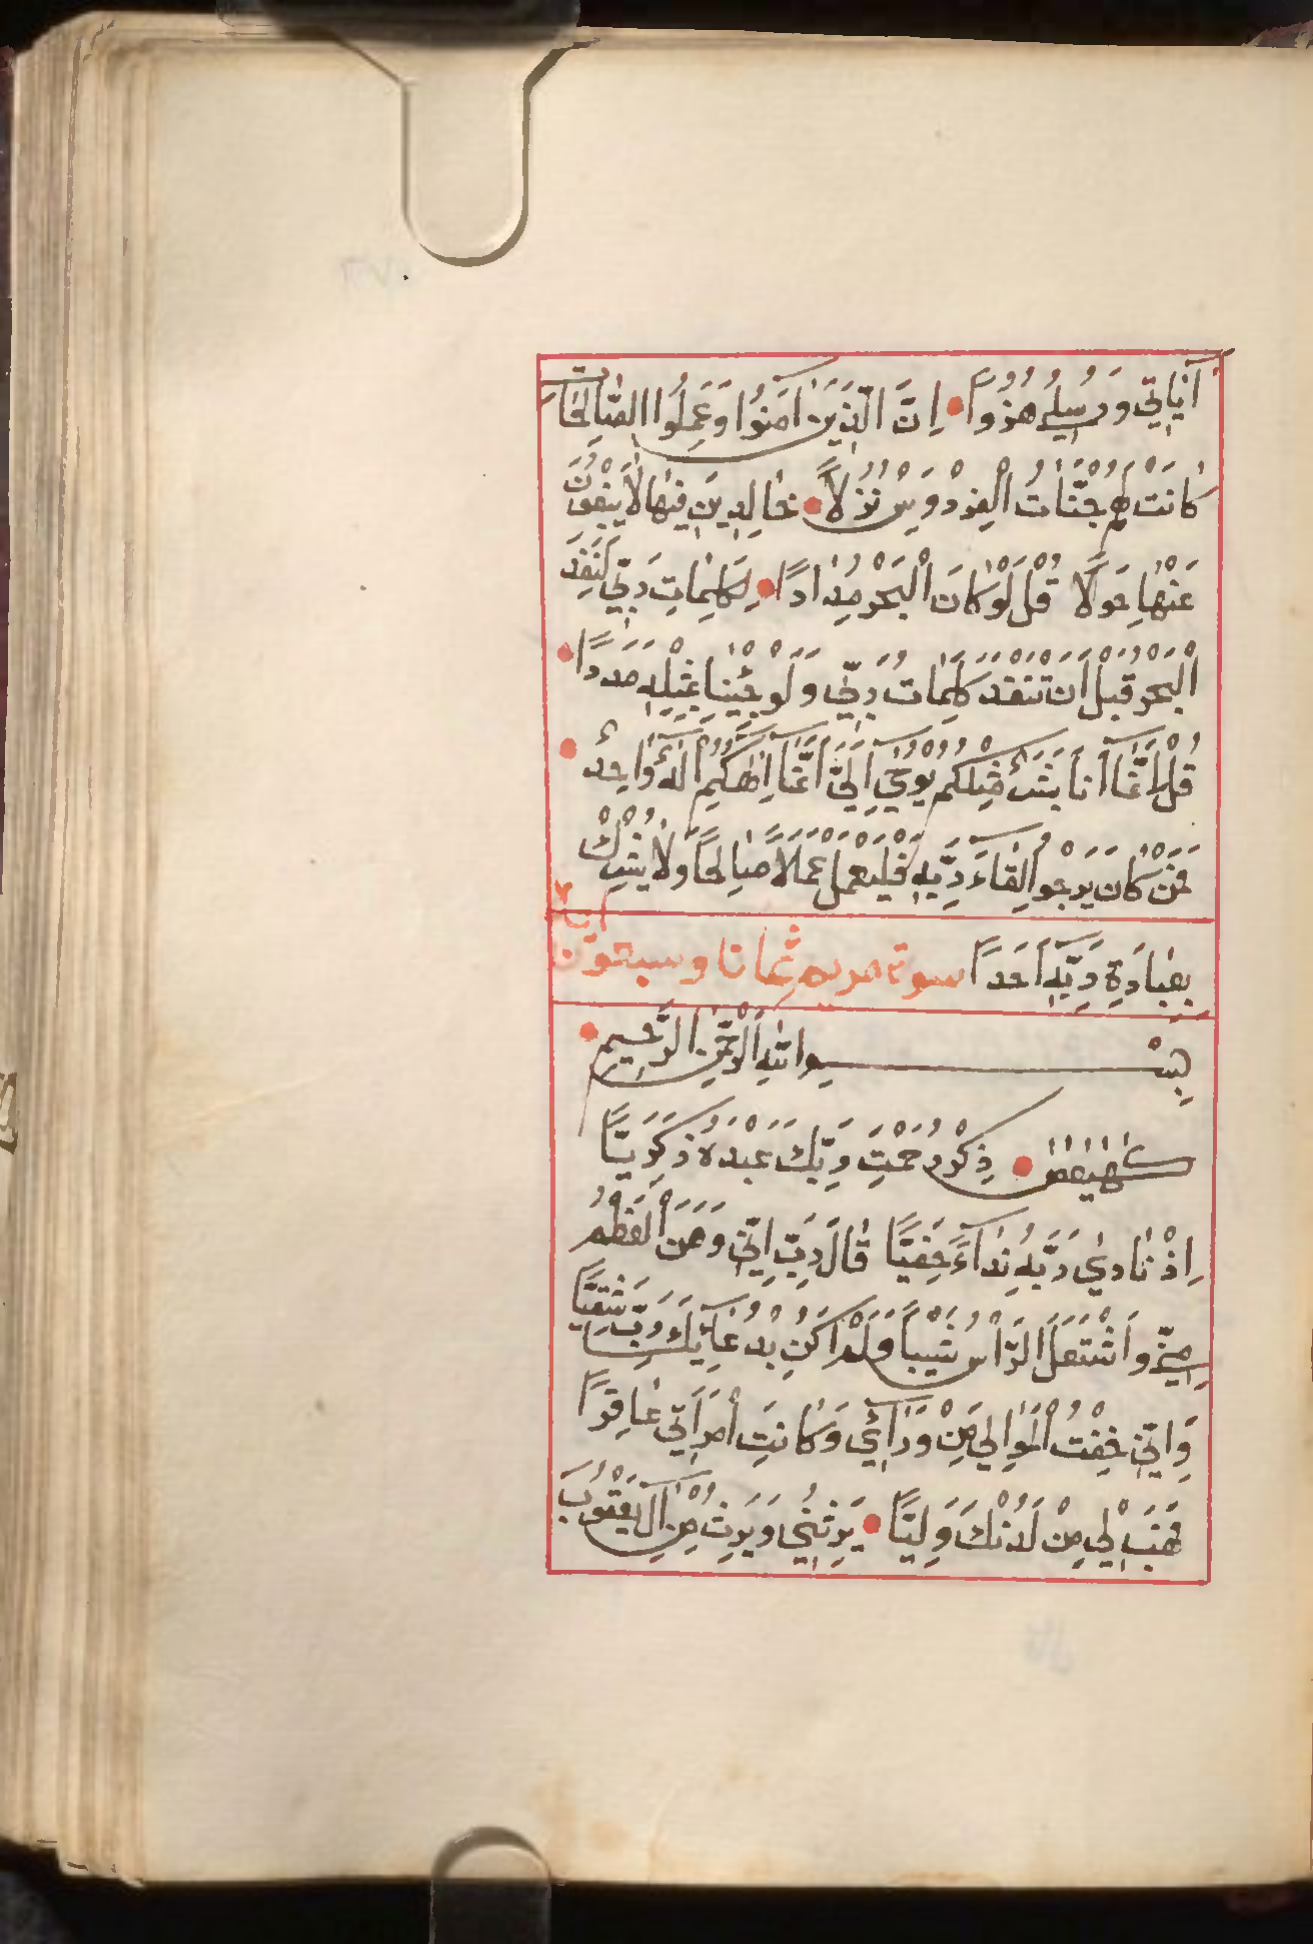 اٰيَاتِي وَرُسُلِي هُزُوًا اِنَّ الَّذِينَ اٰمَنُوا وَعَمِلُوا الصَّالِحَاتِ
كَانَتْ لَهُمْ جَنَّاتُ الْفِرْدَوْسِ نُزُلًا خَالِدِينَ فِيهَا لَا يَبْغُونَ
عَنْهَا حِوَلًا قُلْ لَوْ كَانَ الْبَحْرُ مِدَادًا لِكَلِمَاتِ رَبِّي لَنَفِدَ
الْبَحْرُ قَبْلَ اَنْ تَنْفَدَ كَلِمَاتُ رَبِّي وَلَوْ جِئْنَا بِمِثْلِهِ مَدَدًا
قُلْ اِنَّمَا اَنَا بَشَرٌ مِثْلُكُمْ يُوحٰى اِلَيَّ اَنَّمَا اِلٰهُكُمْ اِلٰهٌ وَاحِدٌ
فَمَنْ كَانَ يَرْجُوا لِقَاءَ رَبِّهِ فَلْيَعْمَلْ عَمَلًا صَالِحًا وَلَا يُشْرِكْ
بِعِبَادَةِ رَبِّهِ اَحَدًا سورة مريم ثمانا وسبعون
بِسْمِ اللّٰهِ الرَّحْمٰنِ الرَّحِيمِ
كهيعص ذِكْرُ رَحْمَتِ رَبِّكَ عَبْدَهُ زَكَرِيَّا
اِذْ نَادٰى رَبَّهُ نِدَاءً خَفِيًّا قَالَ رَبِّ اِنِّي وَهَنَ الْعَظْمُ
مِنِّي وَاشْتَعَلَ الرَّاْسُ شَيْبًا وَلَمْ اَكُنْ بِدُعَائِكَ رَبِّ شَقِيًّا
وَاِنِّي خِفْتُ الْمَوَالِيَ مِنْ وَرَائِي وَكَانَتِ امْرَاَتِي عَاقِرًا
فَهَبْ لِي مِنْ لَدُنْكَ وَلِيًّا يَرِثُنِي وَيَرِثُ مِنْ اٰلِ يَعْقُوبَ